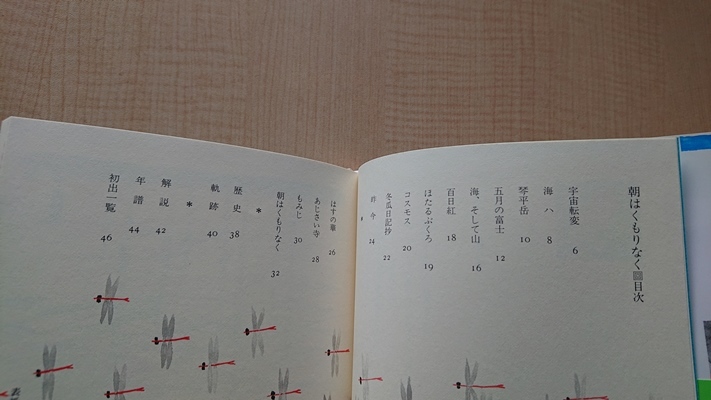 朝はくもりなく▩目次
宇宙転変 6
海ハ 8
琴平岳 10
五月の富士 12
海、そして山 16
百日紅 18
ほたるぶくろ 19
コスモス 20
冬瓜日記抄 22
昨今 24
はすの華 26
あじさい寺 28
もみじ 30
朝はくもりなく 32
*
歴史 38
軌跡 40
*
解説 42
年譜 44
初出一覧 46